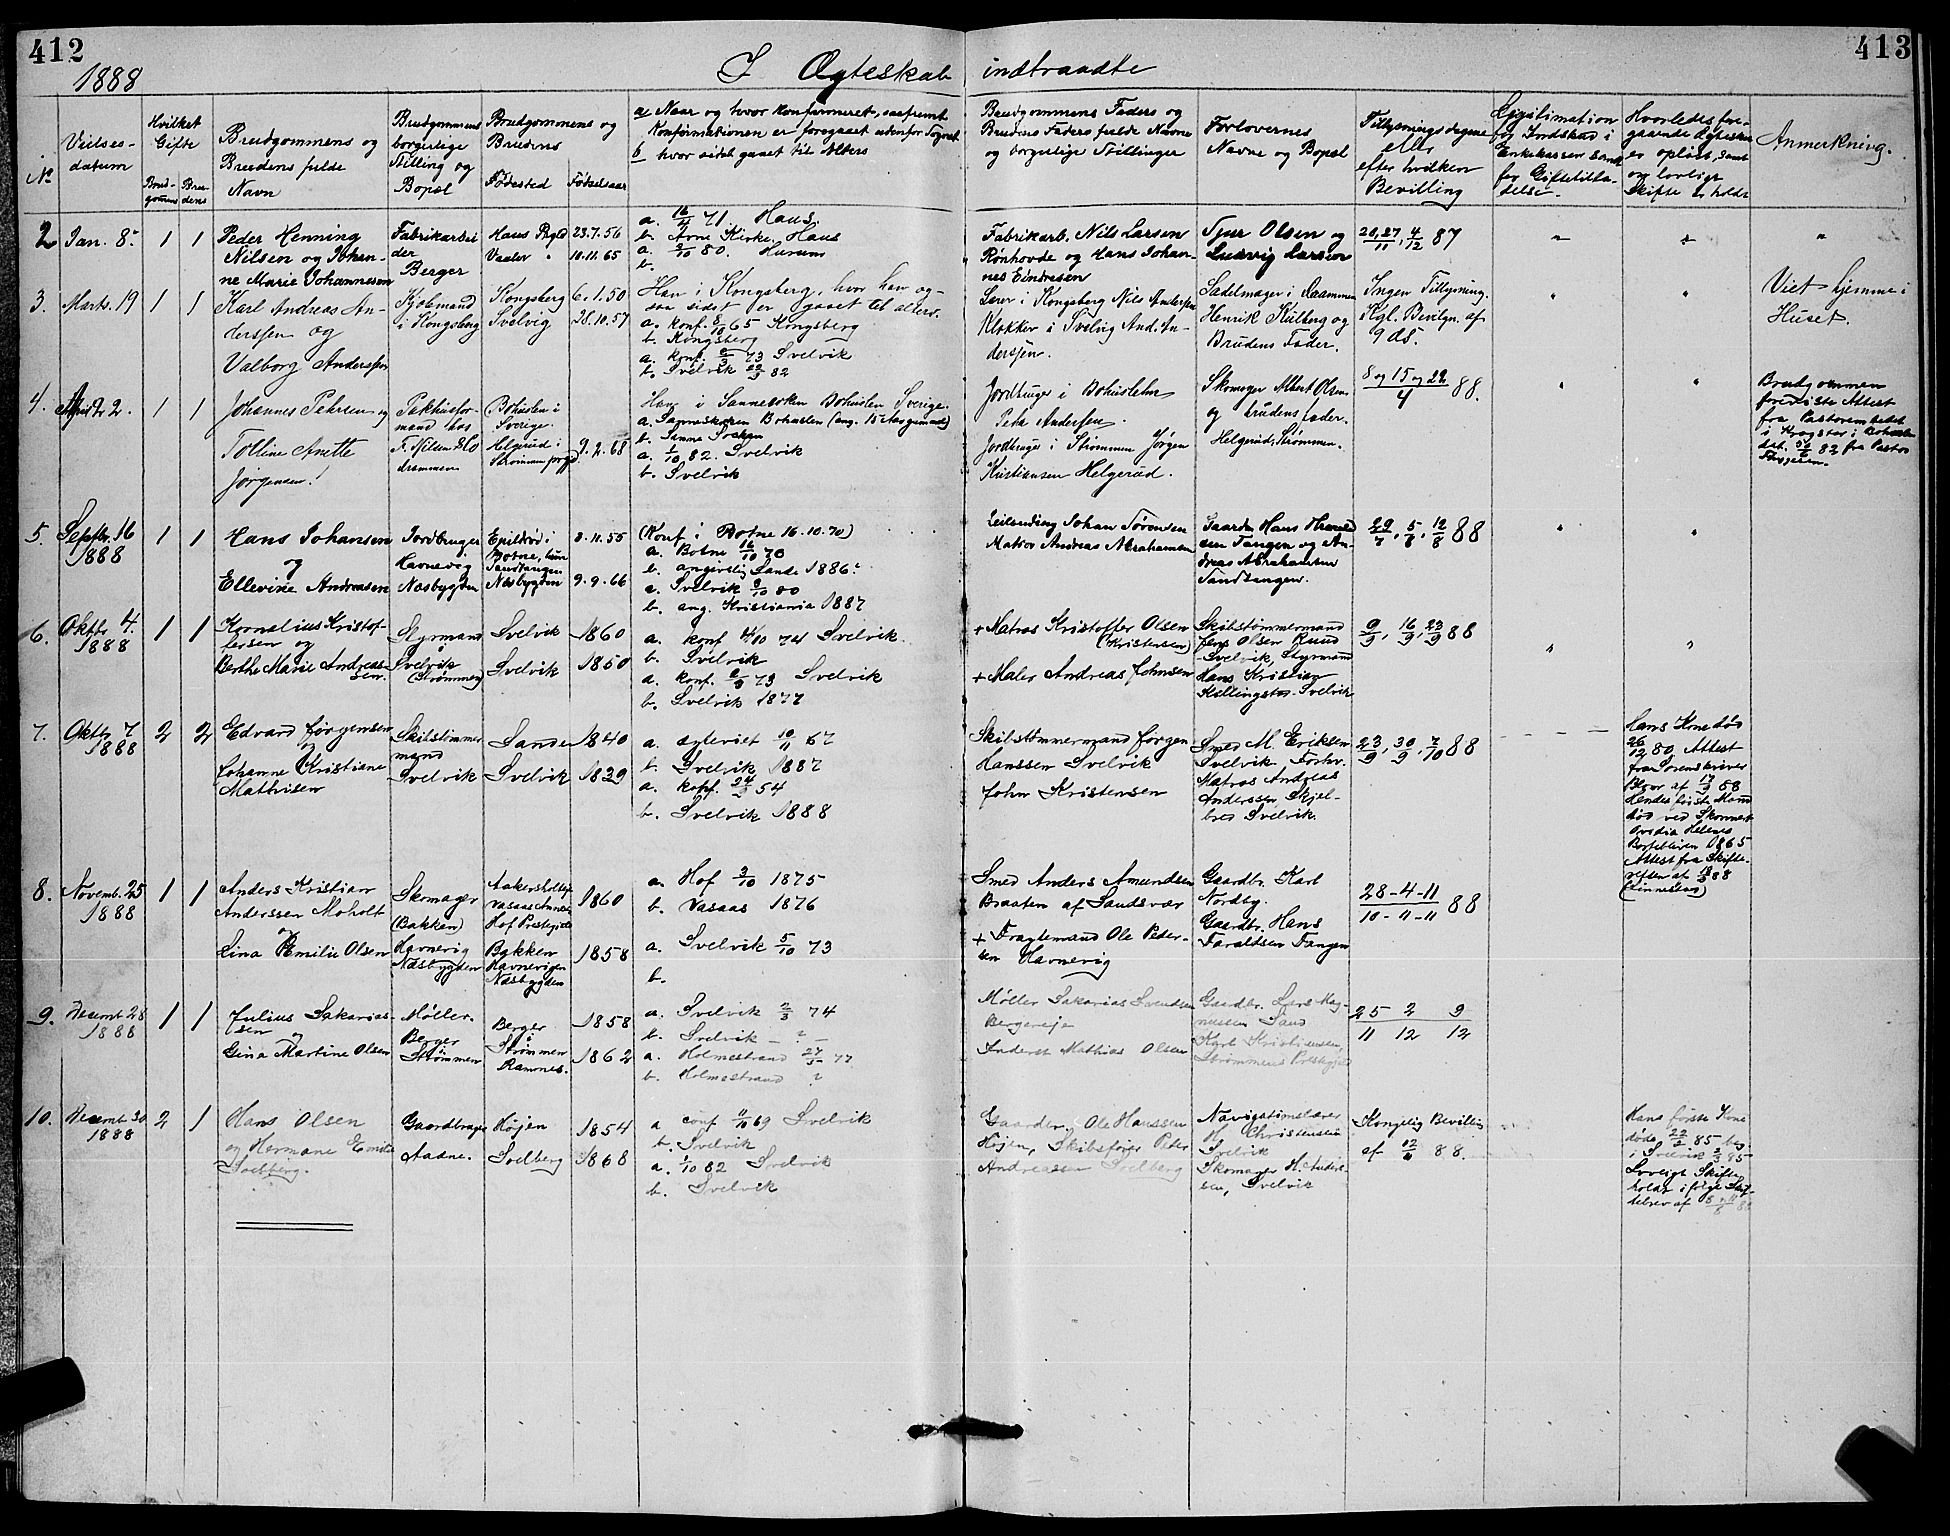 412
413
1888
I Ægteskab indtraadte
No
Vielses-
datum
Hvilket
Gifte
Brud-
gomens
Bru-
dens
Brudgommens og
Brudens fulde
Navn
Brudgommens
borgerlige
Stilling og
Bopæl
Brudgommens og
Brudens
Fødested
Fødselsaar
a Naar og hvor konfirmeret, saafremt
Konfirmationen er foregaaet udenfor Sognet.
b hvor sidst gaaet til Alters
Brudgommens Faders og
Brudens Faders fulde Navne
og borgerlige Stillinger
Forlovernes
Navne og Bopæl
Tillysningsdagene
eller
efter hvilken
Bevilling
Legitimation
for Indskud i
Enkekassen samt
for Giftetilla-
delse
Hvorledes for-
gaaende Ægteskab
er opløst, samt
om lovligt
Skifte er holdt
Anmerkning.
2 Jan. 8. 1 1
Peder Henning
Nilsen og Johan-
ne Marie Johannesen
Fabrikarbei
der
Berger
Haus 23.7.56
Vaaler " 10.11.65
a. 16/4 71. Haus.
b. Arne Kirke, Haus
a. 3/10 80. Hurum
b.
Fabrikarb. Nils Larsen
Rønhovde og Hans Johan-
nes Eindresen
Sjur Olsen og
Ludvig Larsen
20, 27/11, 4/12 87
" " "
3. Marts. 19 1 1
Karl Andreas An-
derssen og
Valborg Anderssen
Kjøbmand
i Kongsberg
Kongsberg 6.1.50
Svelvig 28.10.57
Han i Kongsberg, hvor han og-
saa sidst er gaaet til alters.
a. konf. 8/10 65 Kongsberg
b. Kongsberg
a. konf. 73 Svelvik
b. Svelvik 82
Lærer i Kongsberg Nils Andersen
Klokker i Svelvig And. An-
derssen.
Sadelmager i Drammen
Henrik Kulberg og
Brudens Fader.
Ingen Tillysning.
Kgl. Bevilgn. af
9 ds.
" "
Viet hjemme i
Huset.
4. April 22. 1 1
Johannes Petersen og
Tolline Anette
Jørgensen!
Pakhusfor-
mand hos
F. Nilsen & Co
Drammen
Bohuslen i
Sverige.
Helgerud i
Strømm prgd 9.2.68
Han i Sannesoken Bohuslen Sverige.
a. Sannesoken Bohuslen (ang. 15 Aar gammel)
b. Sanne Socken
a. 1/10 82. Svelvik
b. Svelvik
Jordbruger i Bohuslehn
Peter Andersen.
Jordbruger i Strømmen Jørgen
Kristiansen Helgerud.
Skomager Albert Olsen
og brudens fader.
Helgerud, Strømmen.
8 og 15 og 22/4 88.
" "
Brudgommen
foreviste Attest
fra Pastorembedet
i
dat. 83 fra Pastor
5. Septbr. 16
1888 1 1
Hans Johansen
og
Ellevine Andreasen
Jordbruger
Havnevig
Nesbygden
i
Botne, hun
Sandtangen
Nesbygden
8.11.55
9.9.66
(Konf i Botne 16.10.70)
a. Botne 16/10 70
b. angivelig Sande 1886.
a. Svelvik 3/10 80
b. ang. Kristiania 1887
Leilending Johan Sørensen
Matros Andreas Abrahamsen
Gaardbr. Hans
sen Tangen og An-
dreas Abrahamsen
Sandtangen.
29/7, 5/8, 12/8 88
" "
6. Oktbr 4.
1888 1 1
Kornelius Kristof-
fersen og
Berthe Marie Andreas-
sen.
Styrmand
Svelvik
(Strømmen)
Svelvik 1860
Svelvik 1850
a. konf 4/10 74 Svelvik.
b. Svelvik
a. konf. 73 Svelvik
b. Svelvik 1877
+ Matros Kristoffer Olsen
(Kristensen)
+ Maler Andreas Johnsen
Skibstømmermand
Jens Olsen Ruud
Svelvik, Styrmand
Hans Kristian
Killingstad Svelvik
9/9, 16/9, 23/9 88
" "
7. Oktbr 7
1888 2 2
Edvard Jørgensen
og
Johanne Kristiane
Mathisen
Skibstømmer
mand
Svelvik
Sande 1840
Svelvik 1839
a. egteviet 10/11 67
b. Svelvik 1887
a. konf. 54
b. Svelvik 1888
Skibstømmermand Jørgen
Hanssen Svelvik
John Kristensen
Smed M. Eriksen
Svelvik, Forhv.
Matros Andreas
Anderssen Skjel-
bred Svelvik.
23/9, 30/9, 7/10 88
- - - -
Hans Kone død
26/12 80, Attest
fra Sorenskriver
af 88
Hendes første Mand
død ved Skonnert
Helenes
1865
Attest fra Skifte-
retten af 88
8. Novemb. 25
1888 1 1
Anders Kristian
Anderssen Moholt
og
Lina Emilie Olsen
Skomager
(Bakken)
Havnevig
Nesbygden
Vasaas Annex
Hof Prestegjeld 1860
Bakken
Havnevigen
Nesbygden 1858
a. Hof 3/10 1875
b. Vasaas 1876
a. Svelvik 5/10 73
b.
Smed Anders Amundsen
Braaten af Sandsvær
+ Fragtemand Ole Peder-
sen Havnevig
Gaardbr. Karl
Nordby.
Gaardbr. Hans
Faraldsen Tangen
28-4-11/10-11-11 88
9. Decemb 28
1888 1 1
Julius Sakarias-
sen og
Gina Martine Olsen
Møller.
Berger
Strømmen
Berger
i
Strømmen 1858
Ramnes. 1862
a. Svelvik 2/3 74
b. Svelvik - ? -
a. Holmestrand 27/5 77
b. Holmestrand ?
Møller Sakarias Svendsen
Bergereje
Anders Mathias Olsen
Gaardbr. Lars Mag-
nussen Sand
Karl Kristiansen,
Strømmens Prestegjeld
25 2 9
11 12 12
10. Decemb 30
1888 2 1
Hans Olsen
og Hermane Emilie
Solberg.
Gaardbruger
Aadne.
Højen 1854
Solberg 1868
a conf 69 Svelvik
b. Svelvik
a. 1/10 82 Svelvik
b. Svelvik
Gaardbr. Ole Hanssen
Højen, Skibsfører Peter
Andreassen Solberg
Navigationslærer
H. Christensen
Svelvik
Skomager H. Ander-
sen, Svelvik
Kongelig Bevilling
af 88.
Hans første Kone
døde 22/2 85 beg.
i Svelvik 3/3 85
Lovligt Skifte
holdt ifølge Skif-
tebrev af